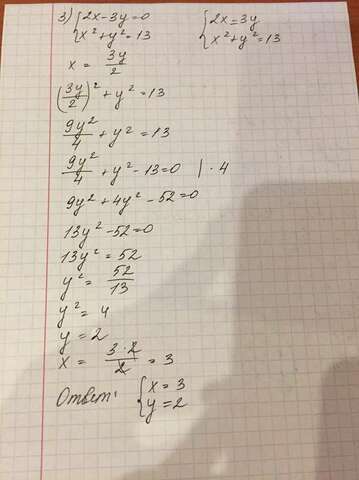 3) {2x-3y=0 {2x=3y
{x²+y²=13 {x²+y²=13
x = 3y/2
(3y/2)² + y² = 13
9y²/4 + y² = 13
9y²/4 + y² - 13 = 0 | · 4
9y² + 4y² - 52 = 0
13y² - 52 = 0
13y² = 52
y² = 52/13
y² = 4
y = 2
x = 3·2/2 = 3
Ответ: {x = 3
{y = 2